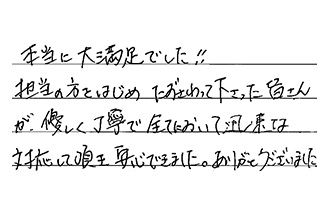 本当に大満足でした!!
担当の方をはじめ たずさわって下さった皆さん
が、優しく丁寧で全てにおいて迅速な
対応して頂き 安心できました。ありがとうございました